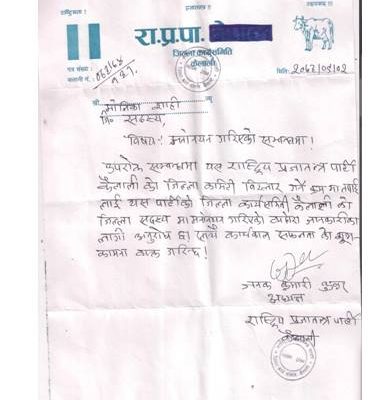 राष्ट्रियता !
प्रजातन्त्र !!
रा.प्र.पा.
जिल्ला कार्यसमिति
कैलाली
पत्र संख्या :
चलानी नं. : ०६२/६४
मिति: २०६२/०९/०२
श्री मोनिका शाही ज्यू
जि० सदस्य,
विषय :- मनोनयन गरिएको सम्बन्धमा ।
उपरोक्त सम्बन्धमा यस राष्ट्रिय प्रजातन्त्र पार्टी
कैलाली को जिल्ला कमिटी विस्तार गर्ने क्रम मा तपाई
लाई यस पार्टीको जिल्ला कार्यसमिती कैलाली को
जिल्ला सदस्य मा मनोनयन गरिएको व्यहोरा जानकारीका
लागी अनुरोध छ । साथै कार्यकाल सफलता को शुभ-
कामना व्यक्त गरिन्छ ।
जनक कुमारी
अध्यक्ष
राष्ट्रिय प्रजातन्त्र पार्टी
कैलाली